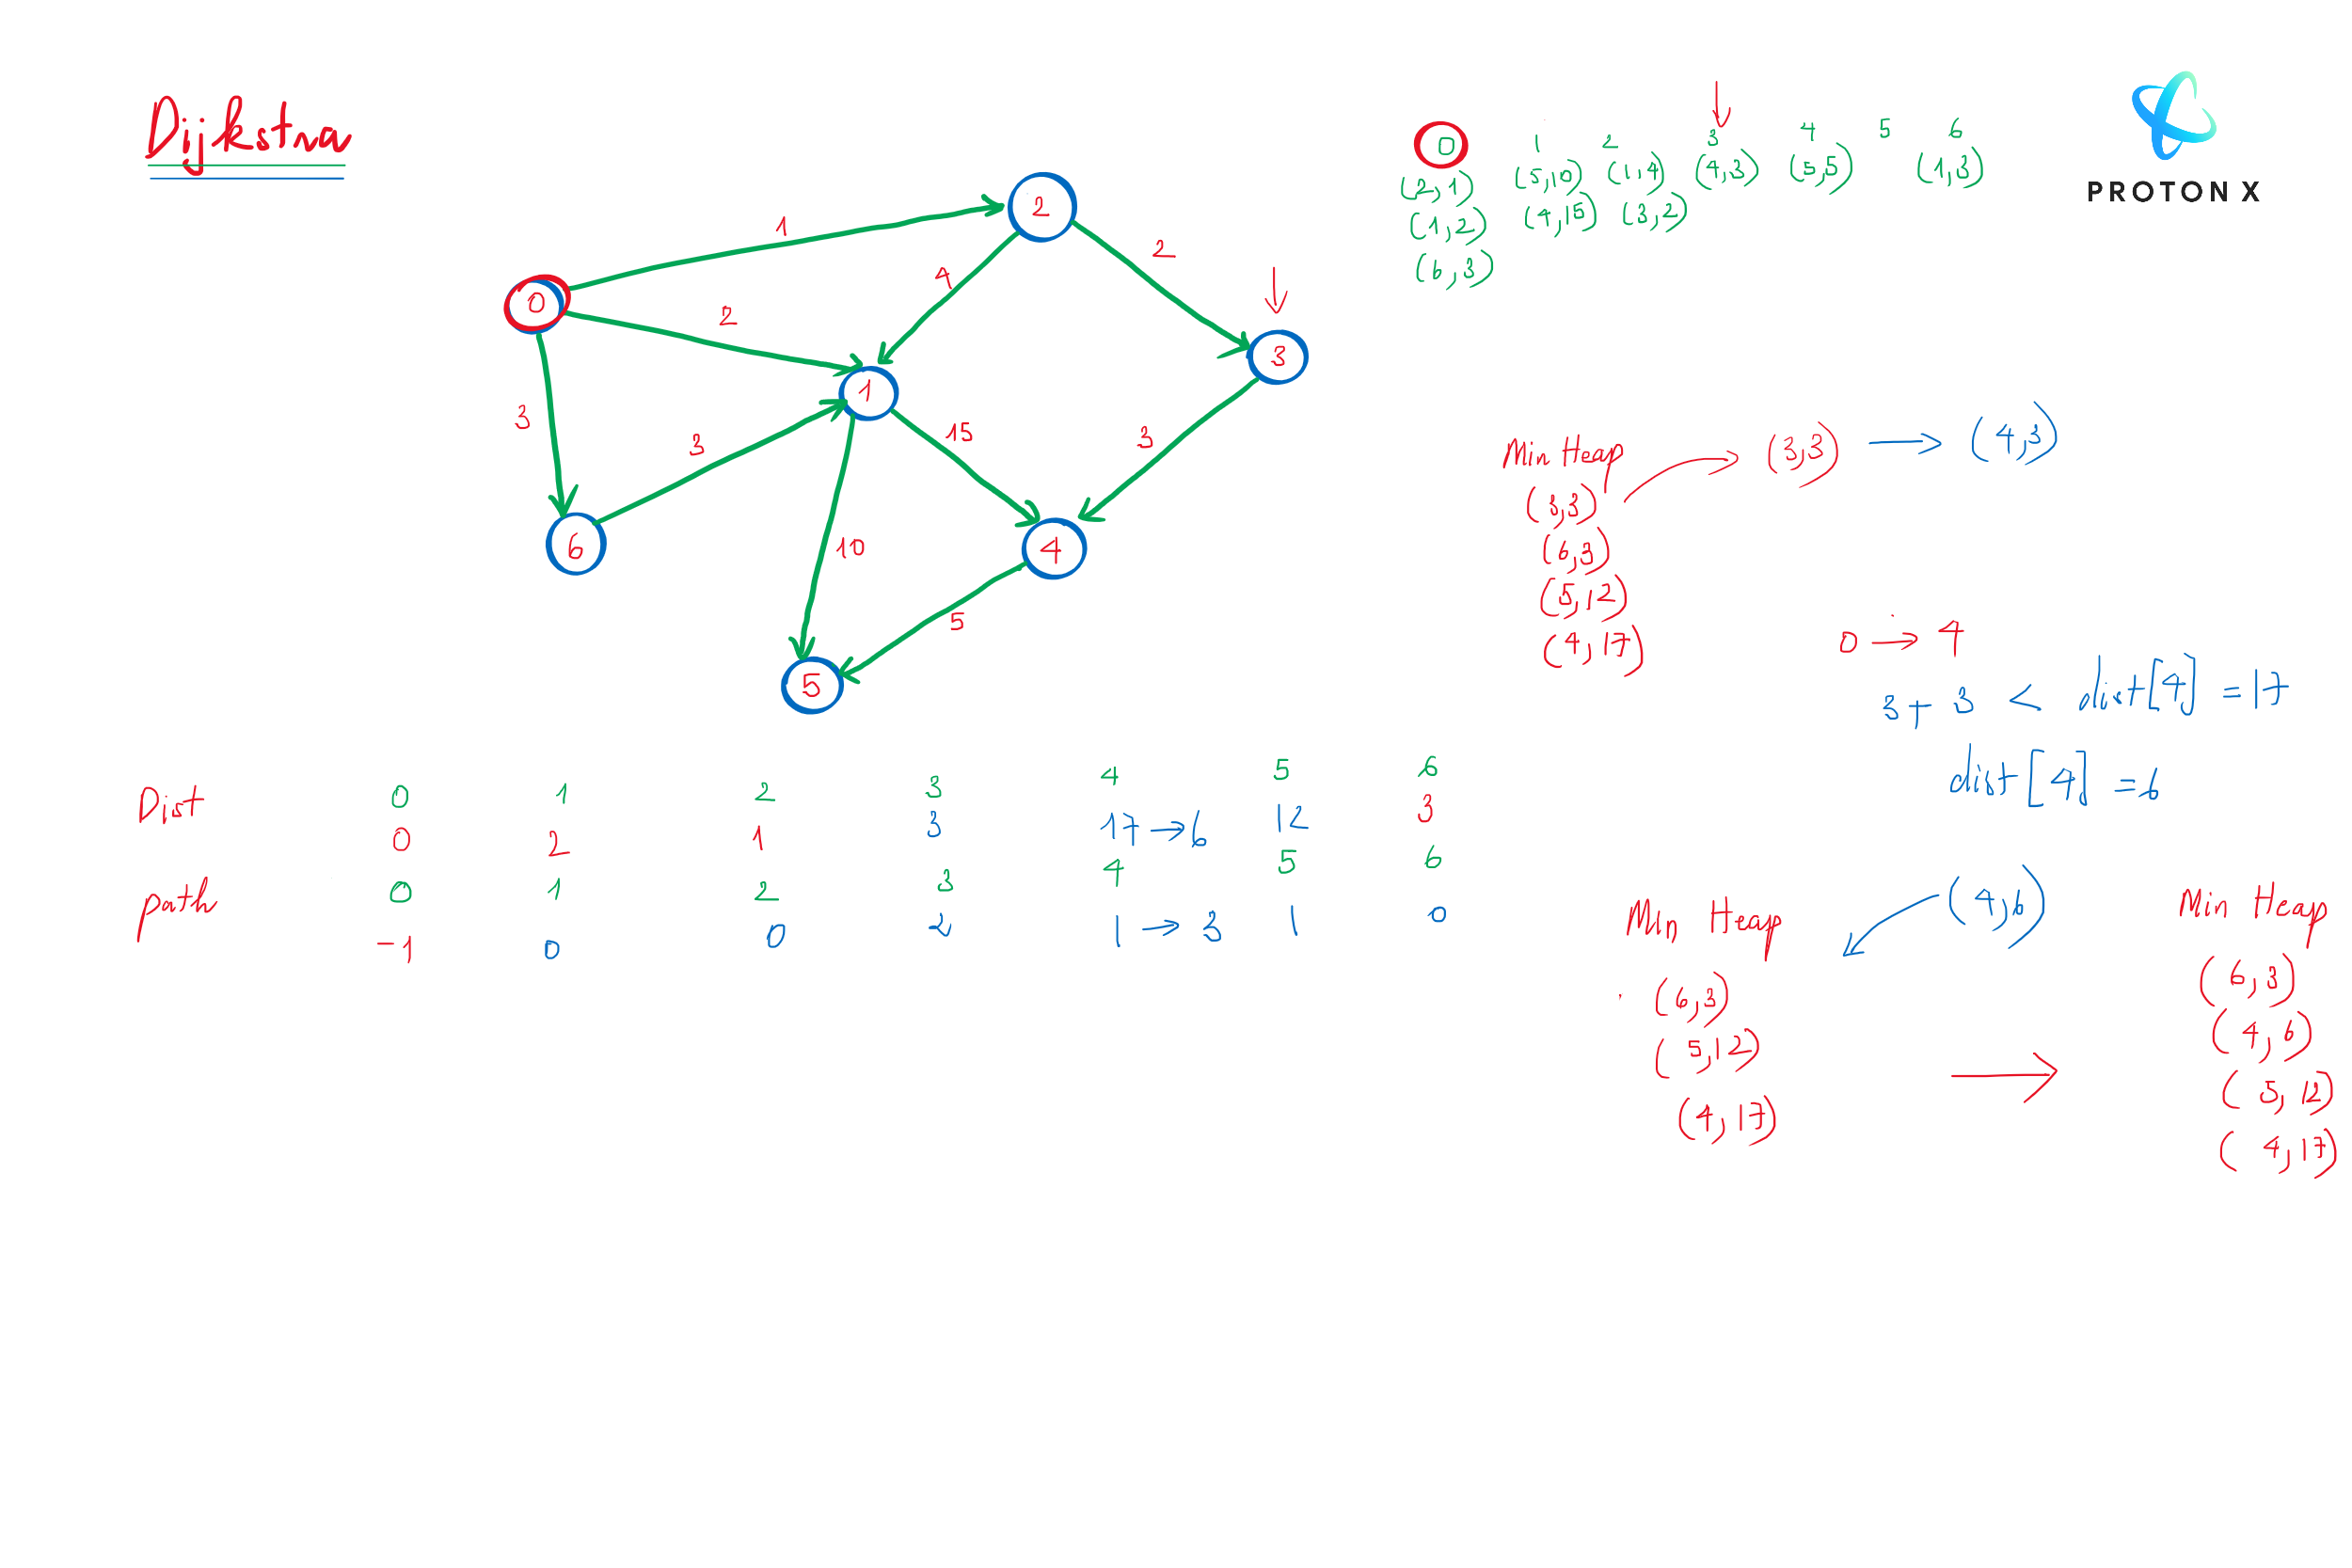 Dijkstra
PROTON X
0 1 2 3 4 5 6
(2,1) (5,10) (1,4) (4,3) (5,5) (1,3)
(1,2) (4,15) (3,2)
(6,3)
1
2
3
4
2
3
15
10
3
5
0
2
1
3
6
4
5
Min Heap
(3,3)
(6,3)
(5,12)
(4,17)
(3,3) → (4,3)
0 → 4
3+3 < dist[4] = 17
dist[4] = 6
Dist 0 1 2 3 4 5 6
0 2 1 3 17→6 12 3
path 0 1 2 3 4 5 6
-1 0 0 2 1 → 3 1 0
Min Heap
(6,3)
(5,12)
(4,17)
(4,6)
→
Min Heap
(6,3)
(4,6)
(5,12)
(4,17)